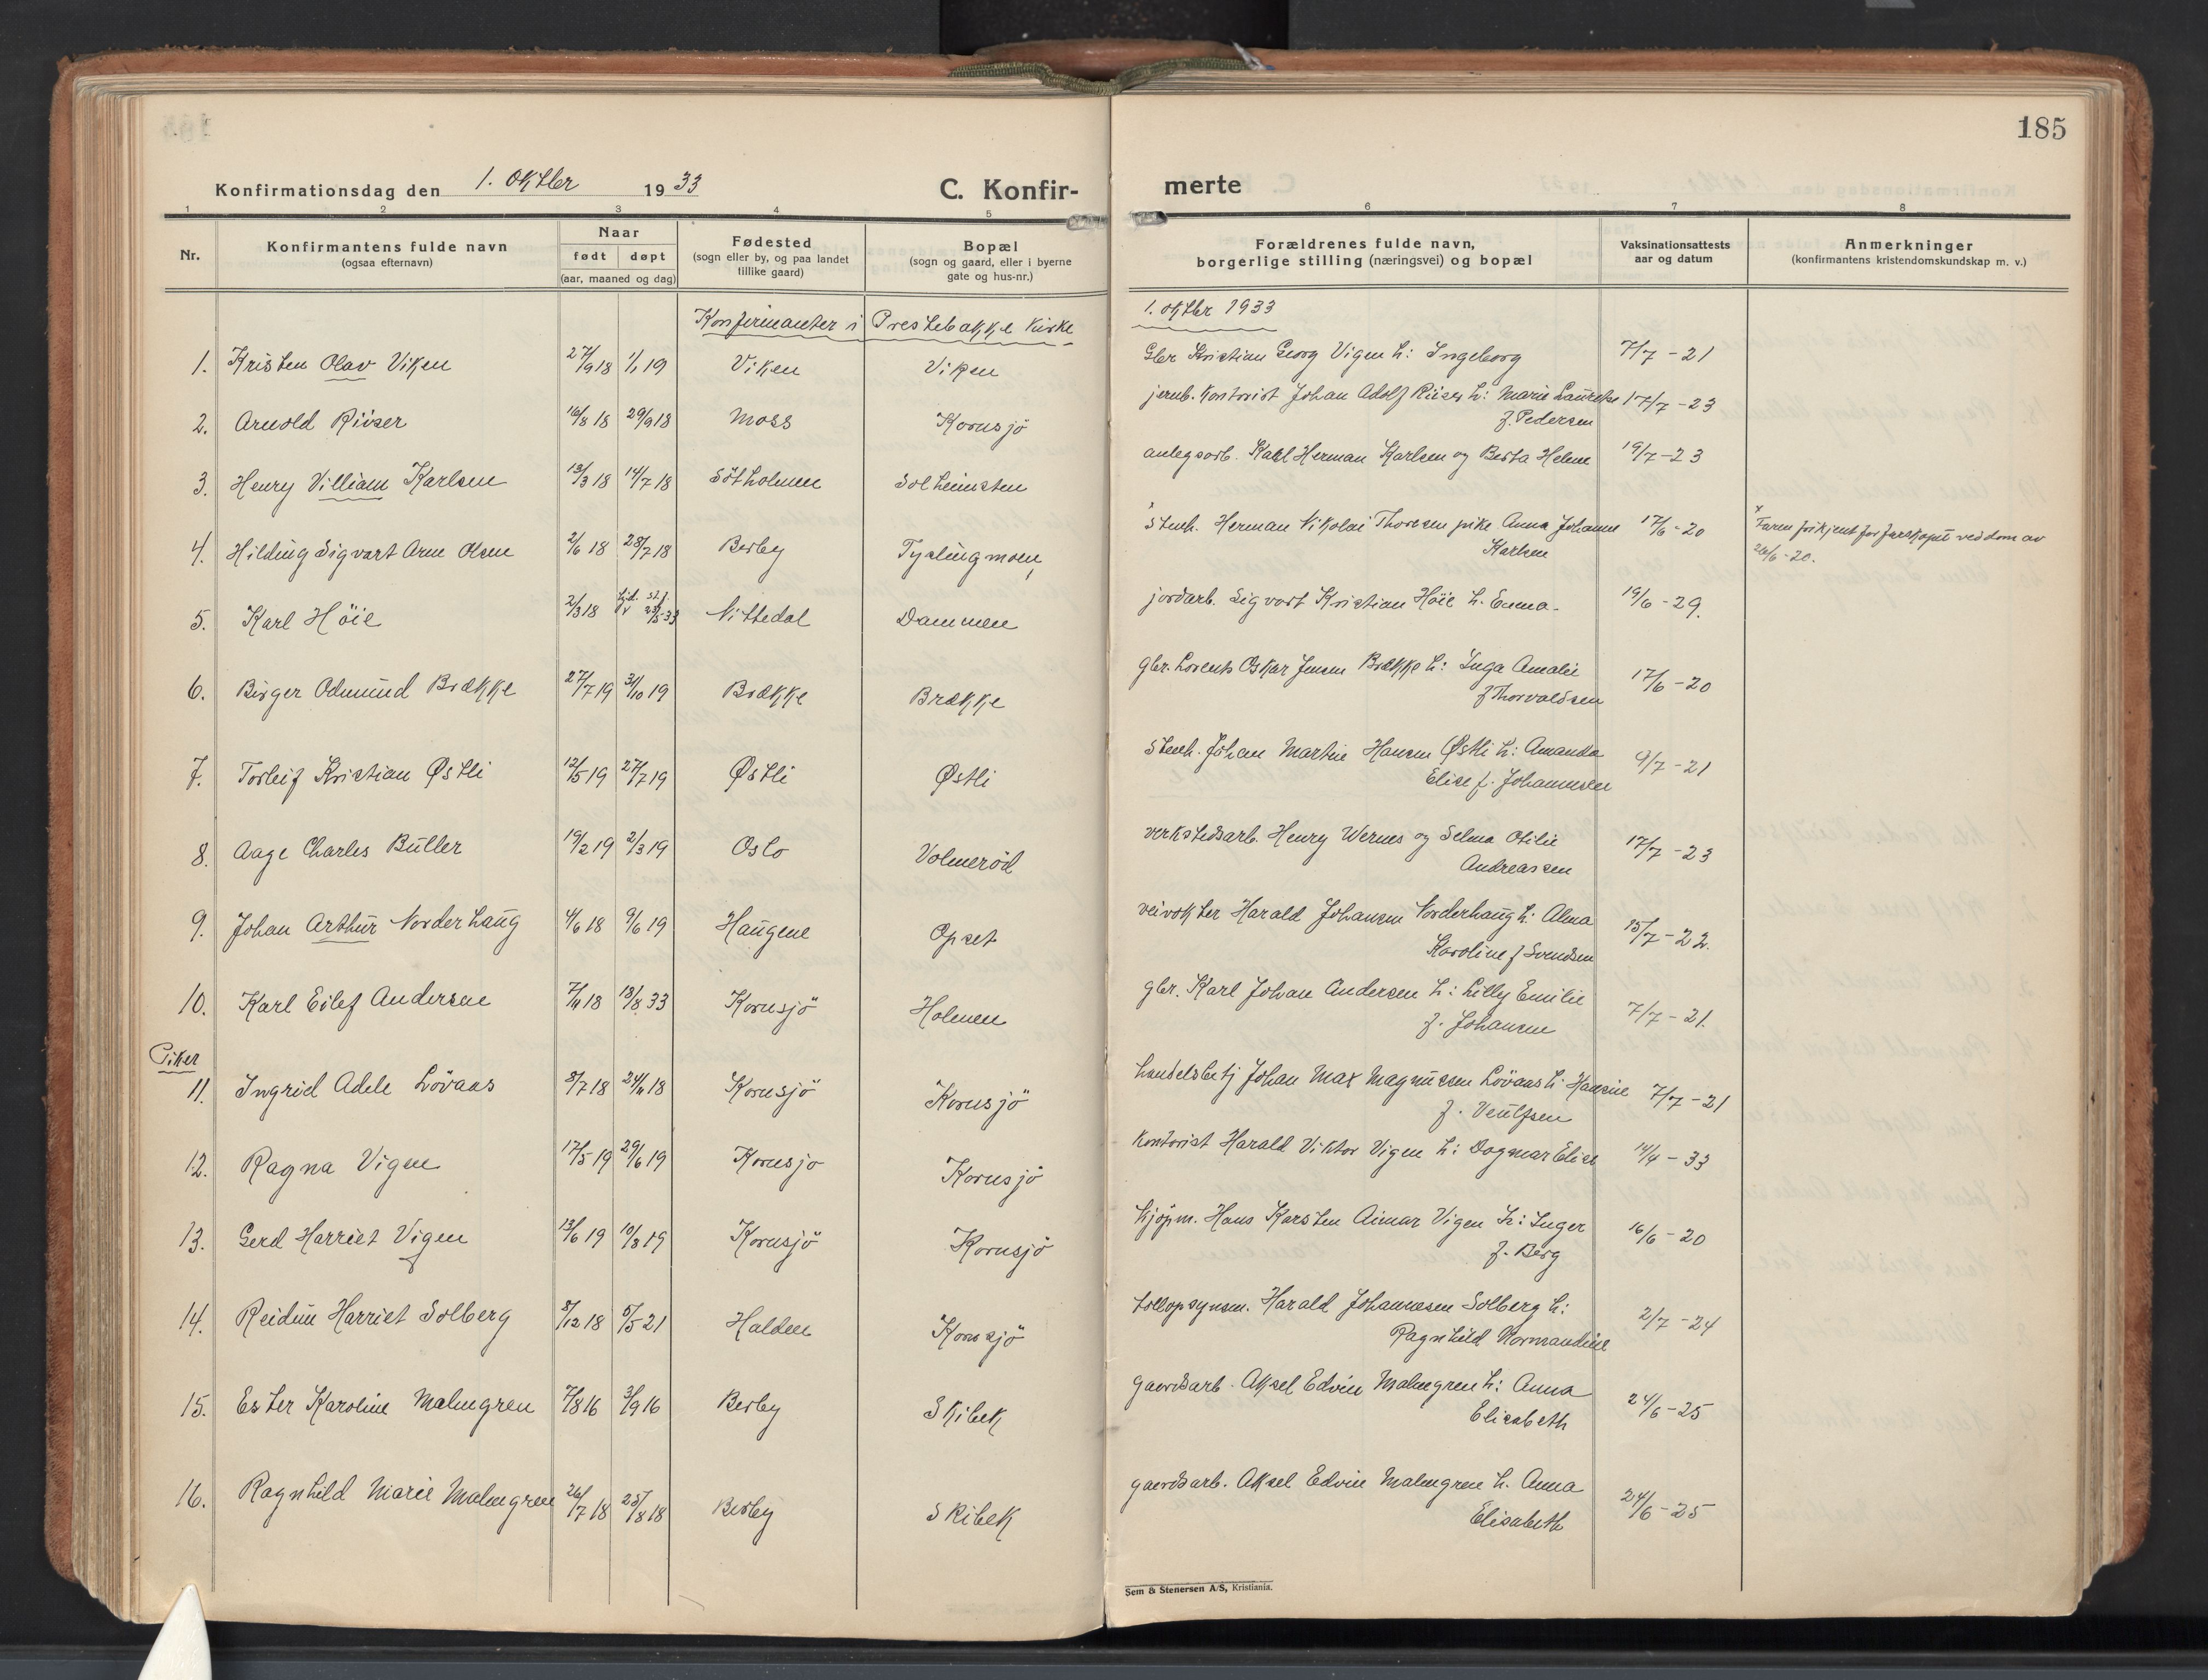 185
Konfirmationsdag den 1. oktber 1933 C. Konfir-
merte
1 2 3 4 5
6 7 8
Nr.
Konfirmantens fulde navn
(ogsaa efternavn)
Naar
født døpt
(aar, maaned og dag)
Fødested
(sogn eller by, og paa landet
tillike gaard)
Bopæl
(sogn og gaard, eller i byerne
gate og hus-nr.)
Forældrenes fulde navn,
borgerlige stilling (næringsvei) og bopæl
Vaksinationsattests
aar og datum
Anmerkninger
(konfirmantens kristendomskundskap m. v.)
Konfirmanter i Prestebakke kirke
1. oktber 1933
1. Kristen Olav Viken 27/9 18 1/1 19 Viken Viken
Gbr Kristian Georg Vigen h: Ingeborg 7/7 - 21
2. Arnold Riiser 16/8 18 29/9 18 Moss Kornsjö
jernb. kontorist Johan Adolf Riiser h: Marie Lauretse 17/7 - 23
f. Pedersen
3. Henry Villiam Karlsen 13/3 18 14/7 18 Götholmen Solheimsten
anlegsarb. Karl Herman Karlsen og Berta Helene 19/7 - 23
4. Hilding Sigvart Arne Olsen 2/6 18 28/7 18 Berby Tyslingmoen
x Stenh. Herman Nikolai Thoresen pike Anna Johanne 17/6 - 20
Karlsen
x Faren frikjent for farskapet ved dom av
26/6 - 20.
5. Karl Höie 2/3 18 Nittedal Dammen
jordarb. Sigvart Kristian Höie h. Emma. 19/6 - 29.
6. Birger Odmund Brække 27/7 19 31/10 19 Brække Brække
gbr. Lorents Oskar Jensen Brække h: Inga Amalie 17/6 - 20
f Thorvaldsen
7. Torleif Kristian Østli 12/5 19 27/7 19 Østli Østli
Stenh. Johan Martin Hansen Østli h: Amanda 9/7 - 21
Elise f. Johannesen
8. Aage Charles Butler 19/2 19 2/3 19 Oslo Volmeröd
verkstedsarb. Henry Wernes og Selma Otilie 17/7 - 23
Andreassen
9. Johan Arthur Norderhaug 4/6 18 9/6 19 Haugene Opset
veivokter Harald Johansen Norderhaug h: Alma 15/7 - 22.
Karoline f Svendsen
10. Karl Eilef Andersen 7/11 18 13/8 33 Kornsjö Holmen
gbr. Karl Johan Andersen h: Lilly Emilie 7/7 - 21.
f. Johansen
Piker
11. Ingrid Adele Lövaas 8/7 18 24/11 18 Kornsjö Kornsjö
handelsbetj Johan Max Magnussen Lövaas h: Hansine 7/7 - 21
f. Veulfsen
12. Ragna Vigen 17/5 19 29/6 19 Kornsjo Kornsjö
Kontorist Harald Viktor Vigen h: Dagmar Elise 14/4 - 33
13. Gerd Harriet Vigen 13/6 19 10/8 19 Kornsjö Kornsjö
kjöpm. Hans Karsten Aimar Vigen h: Inger 16/6 - 20
f. Berg
14. Reidun Harriet Solberg 8/12 18 5/5 21 Halden Kornsjö
tollopsynsm. Harald Johannesen Solberg h: 2/7 - 24
Ragnhild Normandine
15. Ester Karoline Malmgren 7/8 16 3/9 16 Berby Skibek
gaardsarb. Aksel Edvin Malmgren h: Anna 24/6 - 25
Elisabeth
16. Ragnhild Marie Malmgren 26/7 18 25/8 18 Berby Skibek
gaardsarb. Aksel Edvin Malmgren h. Anna 24/6 - 25
Elisabeth
Sem & Stenersen A/S, Kristiania.